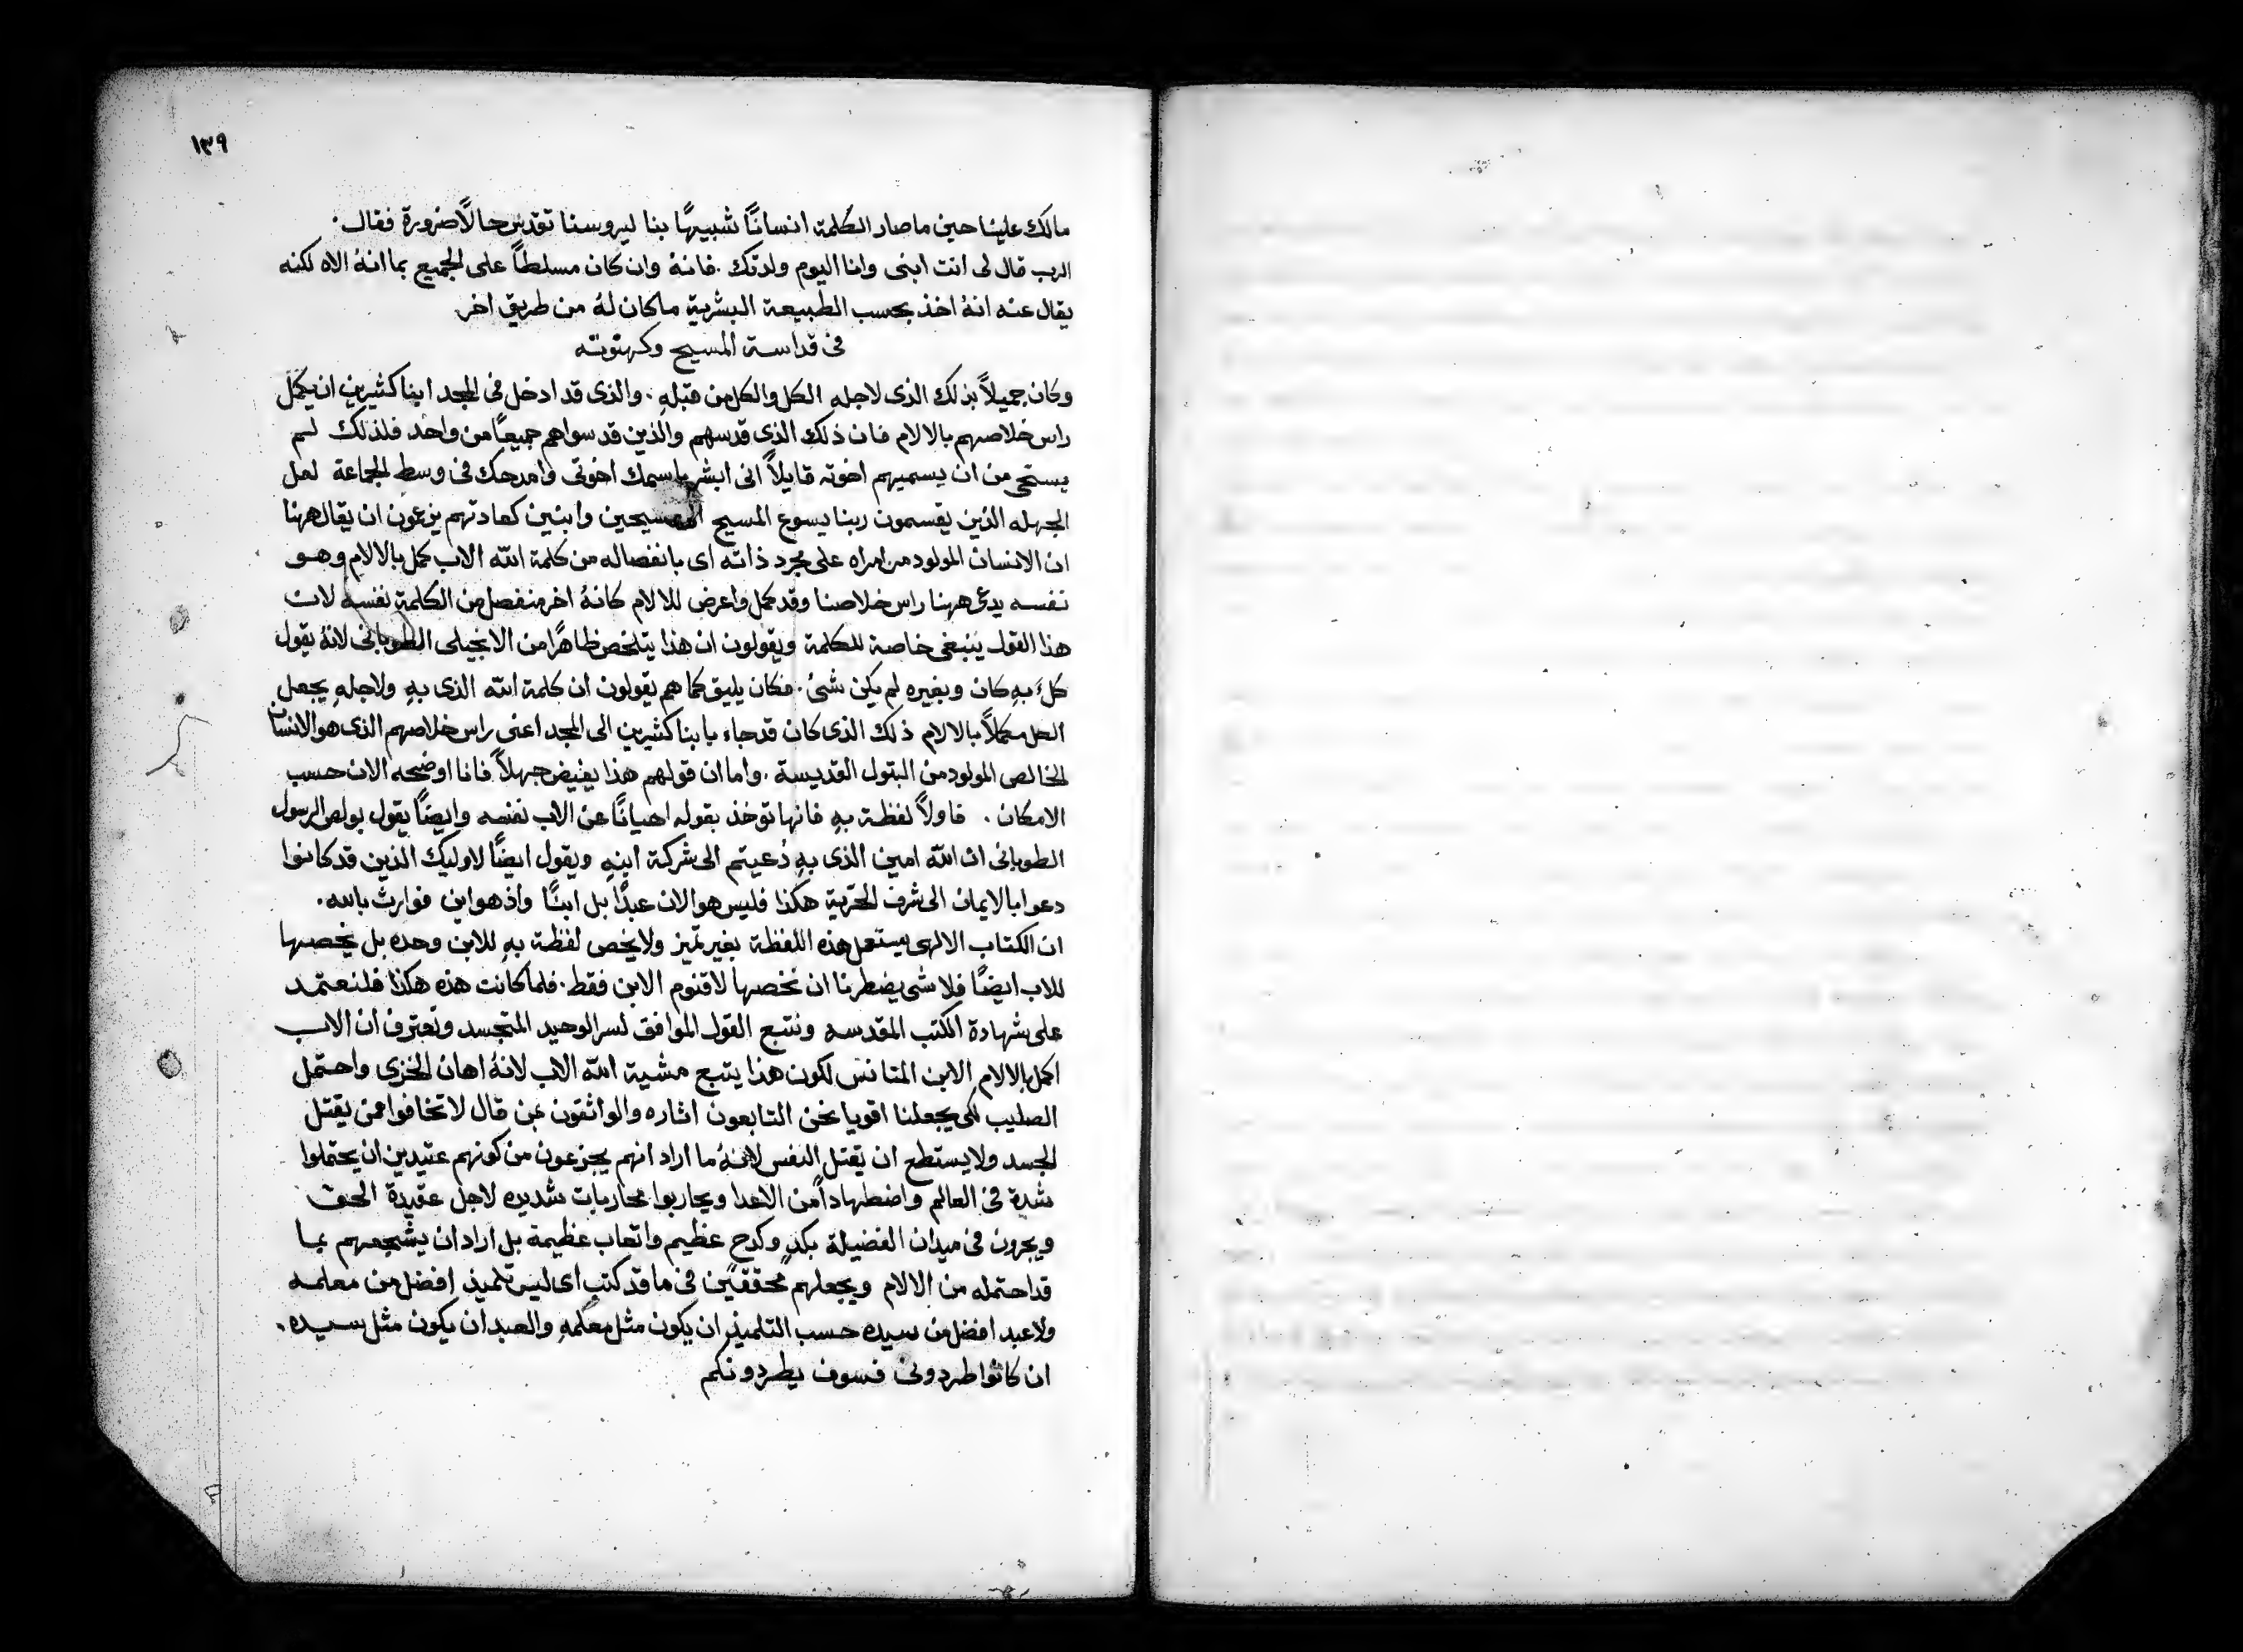 ١٣٩
مالك علينا حين ما صار الكلمة انسانًا شبيهًا بنا ليروسنا تقدس حالًا ضرورة فقال.
الرب قال لى انت ابنى وانا اليوم ولدتك. فانهُ وان كان مسلطاً على الجميع بما انهُ الاه لكنه
يقال عنه انهُ اخذ بحسب الطبيعة البشرية ما كان لهُ من طريق اخر
فى قداسة المسيح وكهنوته
وكان جميلاً بذلك الذى لاجله الكل والكل من قبلهِ. والذى قد ادخل فى المجد ابنا كثيرين ان يكمل
راس خلاصهم بالالام فان ذلك الذى قدسهم والذين قدسوا هم جميعًا من واحد فلذلك لم
يستحى من ان يسميهم اخوته قايلاً انى ابشر باسمك اخوتى وامدحك فى وسط الجماعة لعل
الجهله الذين يقسمون ربنا يسوع المسيح الى مسيحين وابنين كعادتهم يزعون ان يقال ههنا
ان الانسان المولود من امراه على مجرد ذاته اى بانفصاله من كلمة الله الاب كمل بالالام وهو
نفسه يدعى ههنا راس خلاصنا وقد كمل واعرض للالام كانهُ اخر منفصل من الكلمة نفسه لان
هذا القول ينبغى خاصة للكلمة ويقولون ان هذا يتلخص ظاهرًا من الانجيلى الطوبانى لانهُ يقول
كلٌ بهِ كان وبغيره لم يكن شئ. فكان يليق كما هم يقولون ان كلمة الله الذى بهِ ولاجلهِ يجعل
الكل مكملاً بالالام ذلك الذى كان قد جاء بابنا كثيرين الى المجد اعنى راس خلاصهم الذى هو الانسان
الخالص المولود من البتول القديسة. واما ان قولهم هذا يفيض جهلاً فانا اوضحه الان حسب
الامكان. فاولاً لفظة بهِ فانها توخذ بقوله احيانًا عن الاب نفسه وايضًا يقول بولص الرسول
الطوبانى ان الله امين الذى بهِ دُعيتم الى شركة ابنهِ ويقول ايضًا لاوليك الذين قد كانوا
دعوا بالايمان الى شرف الحرية هكذا فليس هو الان عبدًا بل ابنًا واذ هو ابن فوارث بالله.
ان الكتاب الالهى يستعمل هذه اللفظة بغير تميز ولا يخص لفظة بهِ للابن وحده بل يخصصها
للاب ايضًا فلا شى يضطرنا ان نخصها لاقنوم الابن فقط. فلما كانت هذه هكذا فلنعتمد
على شهادة الكتب المقدسه ونتبع القول الموافق لسر الوحيد المتجسد ونعترف ان الاب
اكمل بالالام الابن المتانس لكون هذا يتبع مشية الله الاب لانهُ اهان الخزى واحتمل
الصليب لكى يجعلنا اقويا نحن التابعون اثاره والواثقون بمن قال لا تخافوا ممن يقتل
الجسد ولا يستطع ان يقتل النفس لانهُ ما اراد انهم يجزعون من كونهم عتيدين ان يحتملوا
شدة فى العالم واضطهاداً من الاعدا ويحاربوا محاربات شديده لاجل عقيدة الحق
ويجرون فى ميدان الفضيلة بكدٍ وكدح عظيم واتعاب عظيمة بل اراد ان يشجعهم بما
قد احتمله من الالام ويجعلهم محققين فى ما قد كتب اى ليس تلميذ افضل من معلمه
ولا عبد افضل من سيده حسب التلميذ ان يكون مثل معلمهِ والعبد ان يكون مثل سيده.
ان كانوا طردونى فسوف يطردونكم